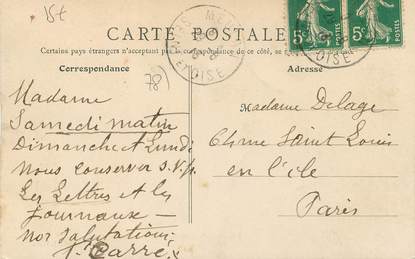 15€
CARTE POSTALE
Certains pays étrangers n'acceptent pas la correspondance de ce côté, se
Correspondance
Adresse
5c
5c
OISE
ET OISE
78)
Madame
Samedi matin
Dimanche et Lundi
nous conserver S.V.p.
Les Lettres et les
journaux –
nos salutations,
Carré
Madame Delage
Rue Saint Louis
en l'île
Paris